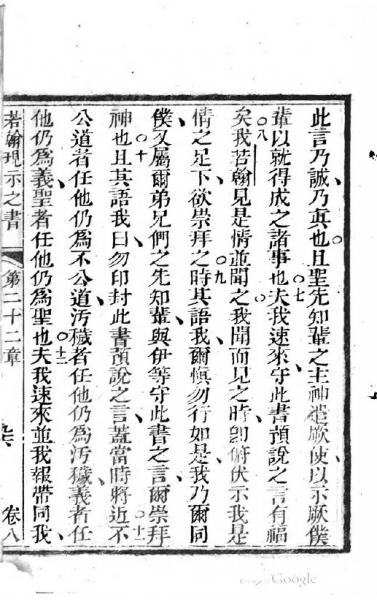 此言乃誠乃真也○且聖先知輩之主神遣厥使以示厥僕
輩以就得成之諸事也○七夫我速來守此書預說之言有福
矣○八我若翰見是情並聞之我聞而見之時卽俯伏示我是
情之足下欲崇拜之時○九其語我爾愼勿行如是我乃爾同
僕又屬爾弟兄們之先知輩與伊等守此書之言爾崇拜
神也○十且其語我曰勿印封此書預說之言蓋當時將近○十一不
公道者任他仍爲不公道污穢者任他仍爲污穢義者任
他仍爲義聖者任他仍爲聖也○十二夫我速來並我報帶同我
若翰現示之書 第二十二章 卷八
Google